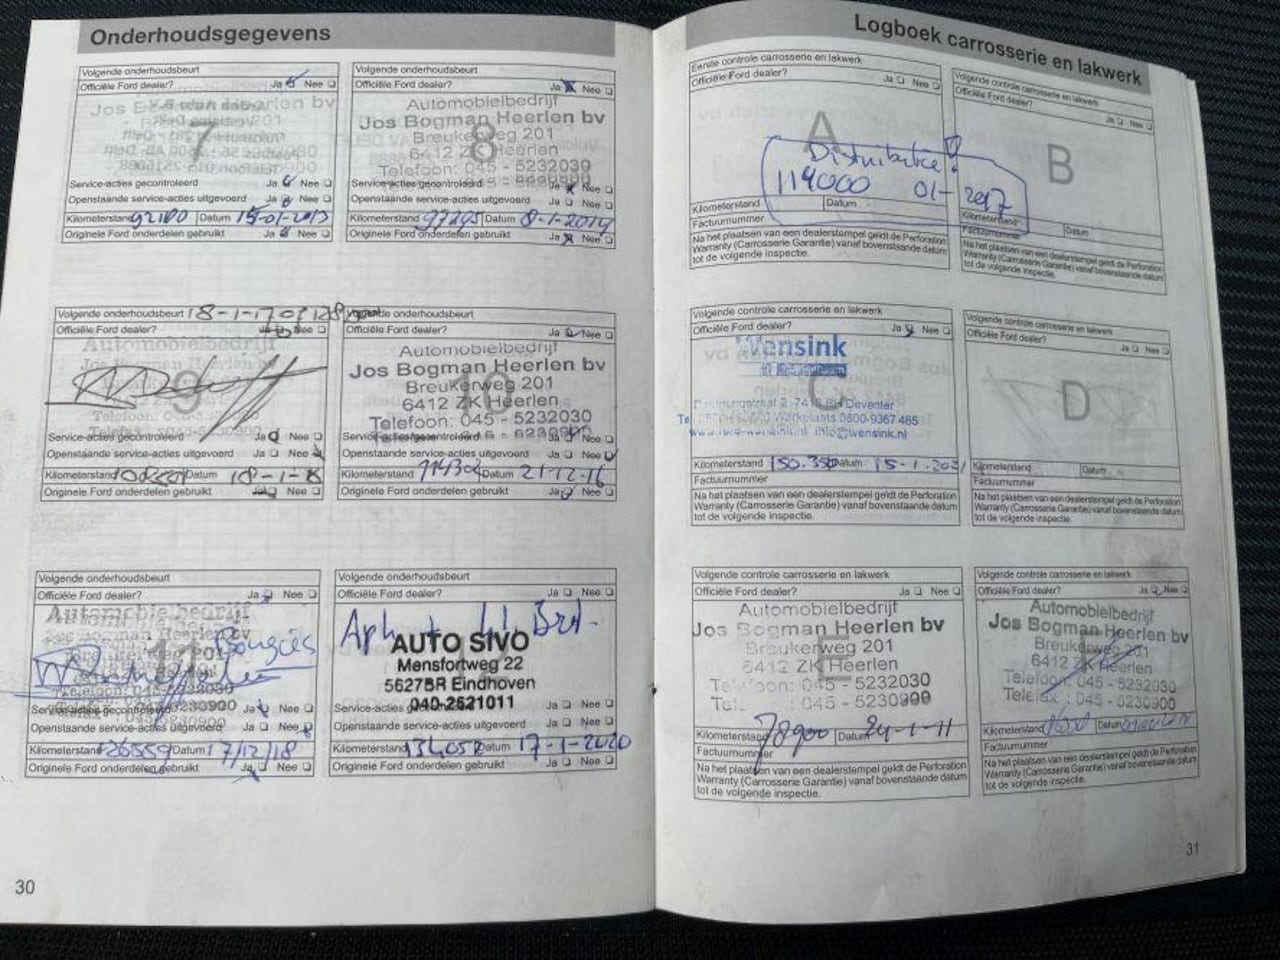 Onderhoudsgegevens
Volgende onderhoudsbeurt
Officiële Ford dealer? Ja Nee
7
Service-acties gecontroleerd Ja Nee
Openstaande service-acties uitgevoerd Ja Nee
Kilometerstand 92100 Datum 15-01-2013
Originele Ford onderdelen gebruikt Ja Nee
Volgende onderhoudsbeurt
Officiële Ford dealer? Ja Nee
8
Automobielbedrijf
Jos Bogman Heerlen bv
Breukerweg 201
6412 ZK Heerlen
Telefoon: 045 - 5232030
Service-acties gecontroleerd Ja Nee
Openstaande service-acties uitgevoerd Ja Nee
Kilometerstand 97295 Datum 8-1-2014
Originele Ford onderdelen gebruikt Ja Nee
Volgende onderhoudsbeurt 18-1-17
Officiële Ford dealer? Ja Nee
9
Automobielbedrijf
Jos Bogman Heerlen bv
Service-acties gecontroleerd Ja Nee
Openstaande service-acties uitgevoerd Ja Nee
Kilometerstand Datum 18-1-16
Originele Ford onderdelen gebruikt Ja Nee
Volgende onderhoudsbeurt
Officiële Ford dealer? Ja Nee
10
Automobielbedrijf
Jos Bogman Heerlen bv
Breukerweg 201
6412 ZK Heerlen
Telefoon: 045 - 5232030
Service-acties gecontroleerd Ja Nee
Openstaande service-acties uitgevoerd Ja Nee
Kilometerstand 114302 Datum 21-12-16
Originele Ford onderdelen gebruikt Ja Nee
Volgende onderhoudsbeurt
Officiële Ford dealer? Ja Nee
11
Automobielbedrijf
Jos Bogman Heerlen bv
Bougies
Service-acties gecontroleerd Ja Nee
Openstaande service-acties uitgevoerd Ja Nee
Kilometerstand 126559 Datum 17/12/18
Originele Ford onderdelen gebruikt Ja Nee
Volgende onderhoudsbeurt
Officiële Ford dealer? Ja Nee
AUTO SIVO
Mensfortweg 22
5627BR Eindhoven
040-2521011
Service-acties Ja Nee
Openstaande service-acties uitgevoerd Ja Nee
Kilometerstand Datum 17-1-2020
Originele Ford onderdelen gebruikt Ja Nee
30
Logboek carrosserie en lakwerk
Eerste controle carrosserie en lakwerk
Officiële Ford dealer? Ja Nee
A
Distributie!
119000 01-2017
Kilometerstand Datum
Factuurnummer
Na het plaatsen van een dealerstempel geldt de Perforation
Warranty (Carrosserie Garantie) vanaf bovenstaande datum
tot de volgende inspectie.
Volgende controle carrosserie en lakwerk
Officiële Ford dealer? Ja Nee
B
Kilometerstand Datum
Factuurnummer
Na het plaatsen van een dealerstempel geldt de Perforation
Warranty (Carrosserie Garantie) vanaf bovenstaande datum
tot de volgende inspectie.
Volgende controle carrosserie en lakwerk
Officiële Ford dealer? Ja Nee
C
Wensink
Deventer
Werkplaats 0800-9367465
info@wensink.nl
Kilometerstand 150.350 Datum 15-1-2021
Factuurnummer
Na het plaatsen van een dealerstempel geldt de Perforation
Warranty (Carrosserie Garantie) vanaf bovenstaande datum
tot de volgende inspectie.
Volgende controle carrosserie en lakwerk
Officiële Ford dealer? Ja Nee
D
Kilometerstand Datum
Factuurnummer
Na het plaatsen van een dealerstempel geldt de Perforation
Warranty (Carrosserie Garantie) vanaf bovenstaande datum
tot de volgende inspectie.
Volgende controle carrosserie en lakwerk
Officiële Ford dealer? Ja Nee
E
Automobielbedrijf
Jos Bogman Heerlen bv
Breukerweg 201
6412 ZK Heerlen
Telefoon: 045 - 5232030
045 - 5230900
Kilometerstand 78900 Datum 24-1-11
Factuurnummer
Na het plaatsen van een dealerstempel geldt de Perforation
Warranty (Carrosserie Garantie) vanaf bovenstaande datum
tot de volgende inspectie.
Volgende controle carrosserie en lakwerk
Officiële Ford dealer? Ja Nee
Automobielbedrijf
Jos Bogman Heerlen bv
Breukerweg 201
6412 ZK Heerlen
Telefoon: 045 - 5232030
Telefax : 045 - 5230900
Kilometerstand Datum
Factuurnummer
Na het plaatsen van een dealerstempel geldt de Perforation
Warranty (Carrosserie Garantie) vanaf bovenstaande datum
tot de volgende inspectie.
31